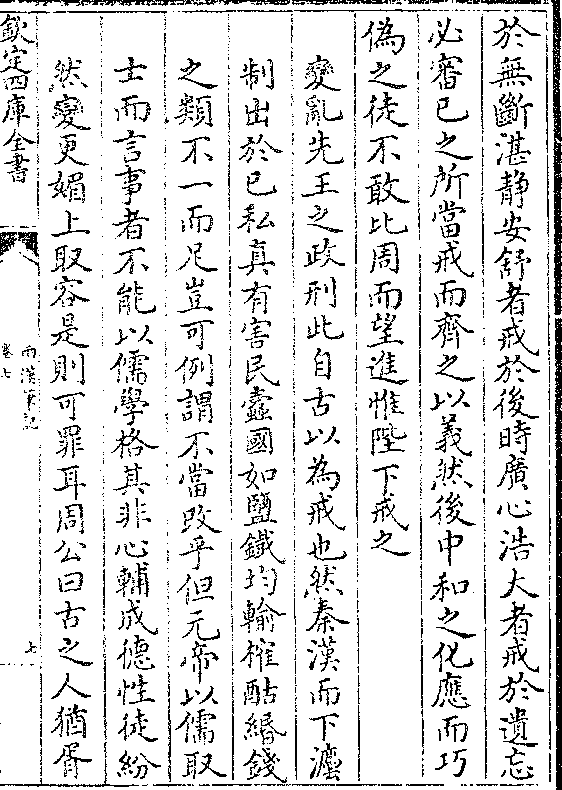 於無斷湛靜安舒者戒於後時廣心浩大者戒於遺忘
必審已之所當戒而齊之以義然後中和之化應而巧
偽之徒不敢比周而望進惟陛下戒之
變亂先王之政刑此自古以為戒也然秦漢而下瀍
制出於已私真有害民蠧國如鹽鐵均輸榷酤緡錢
之類不一而足豈可例謂不當改乎但元帝以儒取
士而言事者不能以儒學格其非心輔成德性徒紛
然變更媚上取容是則可罪耳周公曰古之人猶胥
欽定四庫全書
兩漢筆記
卷七
七